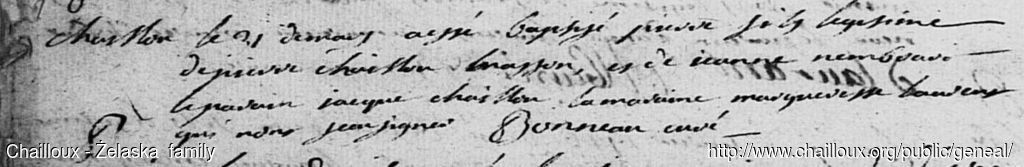 chaillou le 21 de mars a esté baptisé pierre fils legitime
de pierre chaillou masson, et de jeanne
le parain jacque chaillou la maraine marguerite
qui n'ont seu signer Bonneau curé
Chailloux - Żelaska family http://www.chailloux.org/public/geneal/